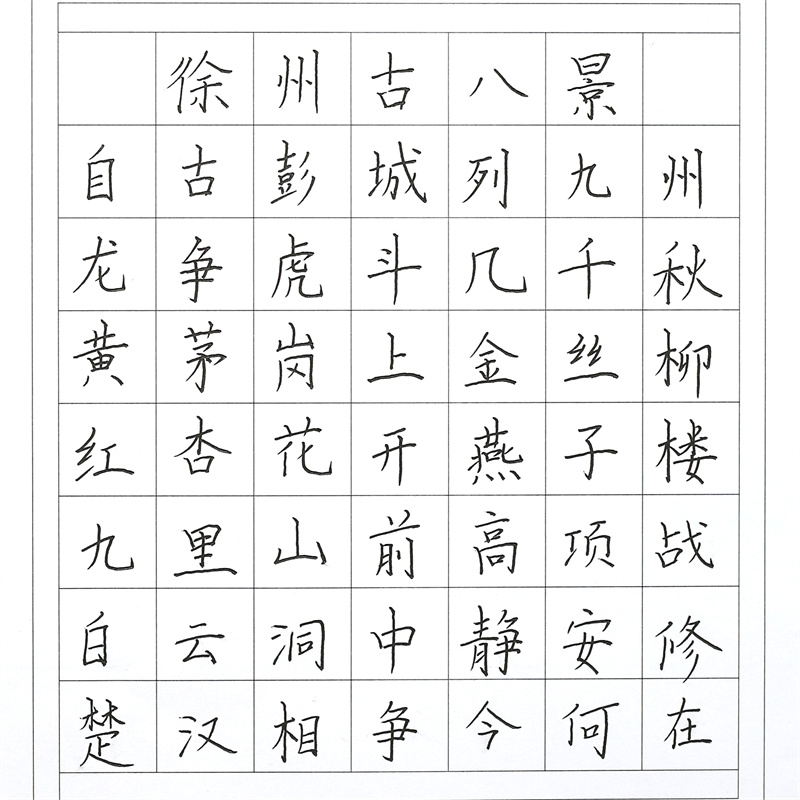 徐州古八景
自古彭城列九州
龙争虎斗几千秋
黄茅岗上金丝柳
红杏花开燕子楼
九里山前高项战
白云洞中静安修
楚汉相争今何在